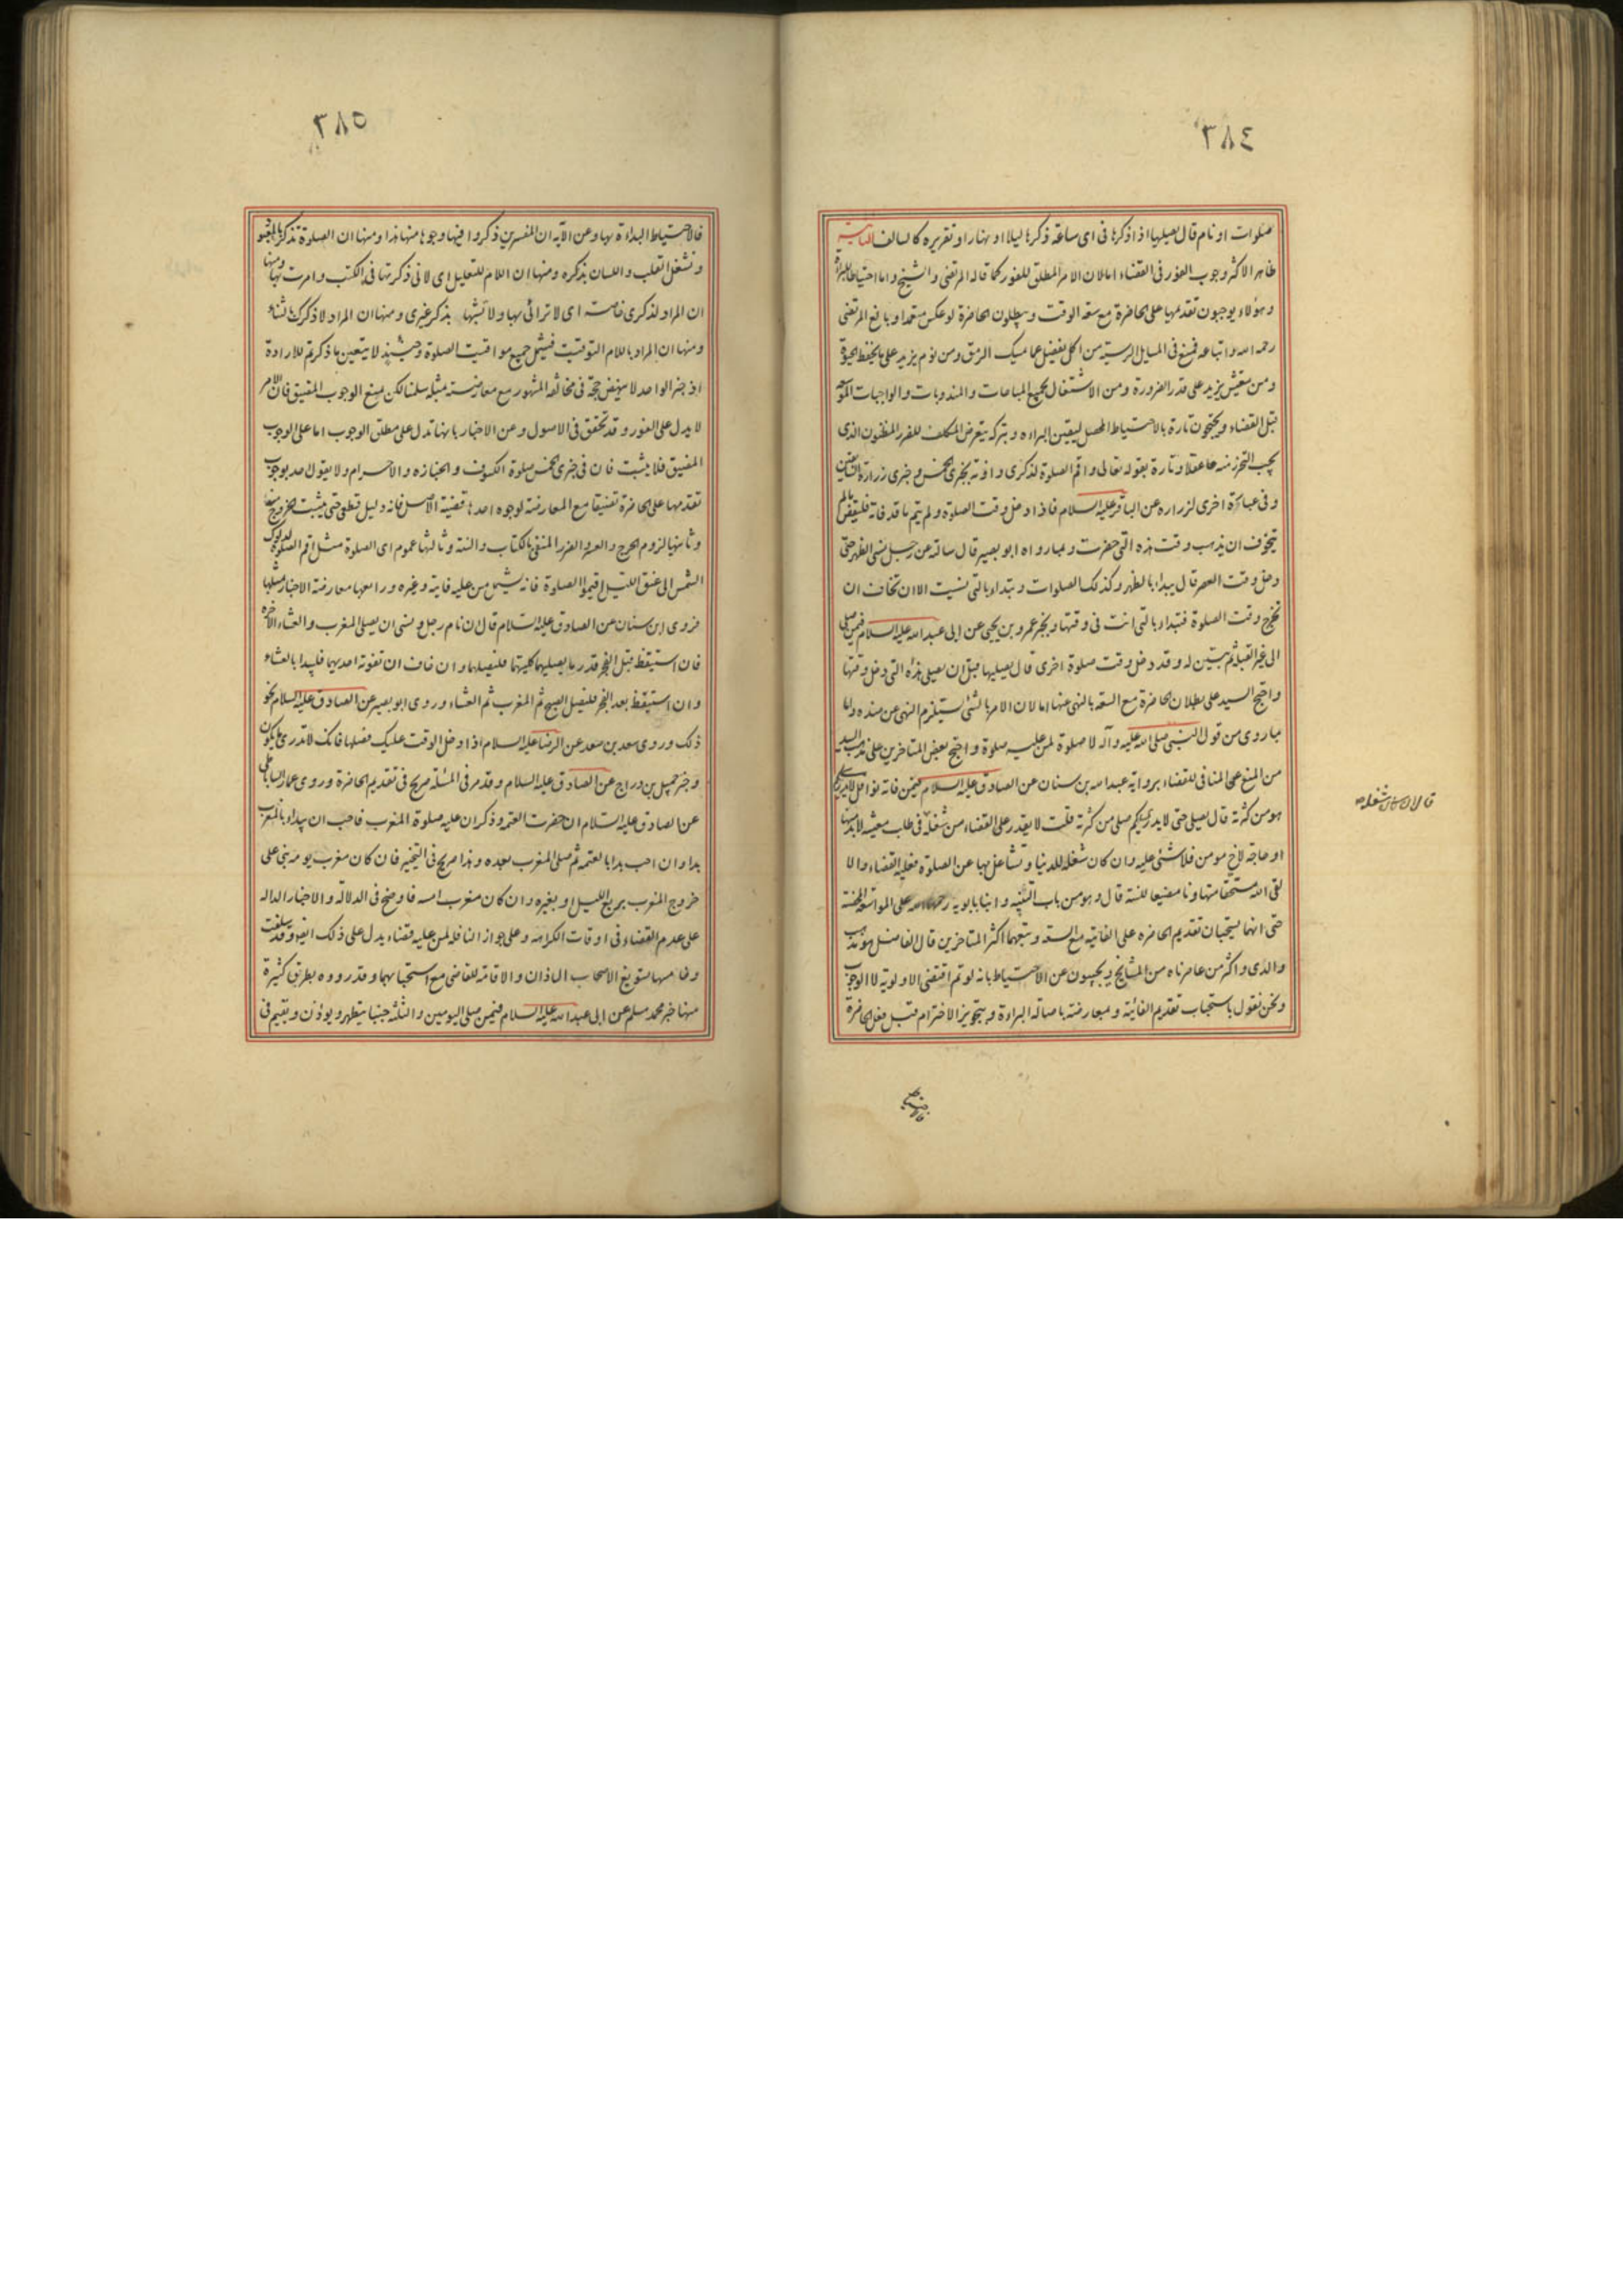 ٣٨٤
صلوات او نام قال يصليها اذا ذكرها فى اى ساعة ذكرها ليلا او نهارا و تقريره كالسالف
ظاهر الاكثر وجوب الفور فى القضاء اما لان الامر المطلق للفور كما قاله المرتضى و الشيخ و اما احتياطا للبراءة
و هؤلاء يوجبون تقديمها على الحاضرة مع سعة الوقت و يبطلون الحاضرة لو عكس متعمدا و بالغ المرتضى
رحمه الله و اتباعه فمنع فى المسايل الرسية من اكل يفضل عما يمسك الرمق و من نوم يزيد على ما يحفظ الحيوة
و من تعيش يزيد على قدر الضرورة و من الاشتغال بجميع المباحات و المندوبات و الواجبات الموسعة
قبل القضاء و يحتجون تارة بالاحتياط المحصل ليقين البراءه و بتركه يتعرض المكلف للضرر المظنون الذى
يجب التحرز منه عقلا و تارة بقوله تعالى و اقم الصلوة لذكرى و بخبرى الخمس و خبرى زرارة السالفين
و فى عبارة اخرى لزراره عن الباقر عليه السلام فاذا دخل وقت الصلوة و لم يتم ما قد فاته فليقض ما لم
يتخوف ان يذهب وقت هذه التى حضرت و بما رواه ابو بصير قال سالته عن رجل نسى الظهر حتى
دخل وقت العصر قال يبداء بالظهر و كذلك الصلوات و تبداء بالتى نسيت الا ان تخاف ان
تخرج وقت الصلوة فتبداء بالتى انت فى وقتها و بخبر عمرو بن يحيى عن ابى عبد الله عليه السلام فيمن صلى
الى غير القبلة ثم تبين له و قد دخل وقت صلوة اخرى قال يصليها قبل ان يصلى هذه التى دخل وقتها
و احتج السيد على بطلان الحاضرة مع السعة بالنهى عنها اما لان الامر بالشئ يستلزم النهى عن ضده و اما
بما روى من قول النبى صلى الله عليه و آله لا صلوة لمن عليه صلوة و احتج بعض المتاخرين على مذهب السيد
من المنع عن المنافى للقضاء برواية عبد الله بن سنان عن الصادق عليه السلام فيمن فاته نوافل لا يدرى ما
هو من كثرته قال يصلى حتى لا يدرى كم صلى من كثرته قلت لا يقدر على القضاء من شغله فى طلب معيشة لا بد منها
او حاجة لاخ مومن فلا شئ عليه و ان كان شغله للدنيا و تشاغل بها عن الصلوة فعليه القضاء و الا
لقى الله مستخفا متهاونا مضيعا للسنة قال و هو من باب التنبيه و ابنا بابويه رحمهما الله على المواسعة المحضة
حتى انهما يستحبان تقديم الحاضره على الفايتة مع السعة و تبعهما اكثر المتاخرين قال الفاضل و هو مذهب
والدى و اكثر من عاصرناه من المشايخ و يجيبون عن الاحتياط بانه لو تم اقتضى الاولوية لا الوجوب
و نحن نقول باستحباب تقديم الفائتة و بمعارضته باصالة البراءة و بتجويز الاخترام قبل فعل الحاضرة
٣٨٥
فالاحتياط البداءة بها و عن الاية ان المفسرين ذكروا فيها وجوها منها هذا و منها ان الصلوة تذكر بالمعبود
و تشغل القلب و اللسان بذكره و منها ان اللام للتعليل اى لانى ذكرتها فى الكتب و امرت بها و منها
ان المراد لذكرى خاصة اى لا ترائى بها و لا تشبها بذكر غيرى و منها ان المراد لاذكرك بالثناء
و منها ان المراد باللام التوقيت فيشمل جميع مواقيت الصلوة و حينئذ لا يتعين ما ذكرتم للارادة
اذ خبر الواحد لا ينهض حجة فى مخالفة المشهور مع معارضته بمثله سلمنا لكن نمنع الوجوب المضيق فان الامر
لا يدل على الفور و قد تحقق فى الاصول و عن الاخبار بانها تدل على مطلق الوجوب اما على الوجوب
المضيق فلا يثبت فان فى خبرى الخمس صلوة الكسوف و الجنازه و الاحرام و لا يقول احد بوجوب
تقديمها على الحاضرة تضييقا مع المعارضة لوجوه احدها قضية الاصل فانه دليل قطعى حتى يثبت الخروج عنها
و ثانيها لزوم الحرج و العسر و الضرر المنفى بالكتاب و السنة و ثالثها عموم اى الصلوة مثل اقم الصلوة لدلوك
الشمس الى غسق الليل اقيموا الصلوة فانه يشمل من عليه فايتة و غيره و رابعها معارضة الاخبار بمثلها
فروى ابن سنان عن الصادق عليه السلام قال ان نام رجل و نسى ان يصلى المغرب و العشاء الاخرة
فان استيقظ قبل الفجر قدر ما يصليهما كليهما فليصلهما و ان خاف ان تفوته احديهما فليبدا بالعشاء
و ان استيقظ بعد الفجر فليصل الصبح ثم المغرب ثم العشاء و روى ابو بصير عن الصادق عليه السلام نحو
ذلك و روى سعد بن سعد عن الرضا عليه السلام اذا دخل الوقت عليك فصلها فانك لا تدرى ما يكون
و خبر جميل بن دراج عن الصادق عليه السلام و قد مر فى المسئلة صريح فى تقديم الحاضرة و روى عمار الساباطى
عن الصادق عليه السلام ان حضرت العتمة و ذكر ان عليه صلوة المغرب فاحب ان يبداء بالمغرب
بدا و ان احب بدا بالعتمة ثم صلى المغرب بعده و هذا صريح فى التخيير فان كان مغرب يومه بنى على
خروج المغرب بربع الليل او بغيره و ان كان مغرب امسه فاوضح فى الدلالة و الاخبار الدالة
على عدم القضاء فى اوقات الكراهة و على جواز النافلة لمن عليه قضاء يدل على ذلك ايضا و قد سلفت
و خامسها تسويغ الاصحاب الاذان و الاقامة للقاضى مع استحبابهما و قد رووه بطريق كثيرة
منها خبر محمد مسلم عن ابى عبد الله عليه السلام فيمن صلى اليومين و الثلثة جنبا يتطهر و يؤذن و يقيم فى